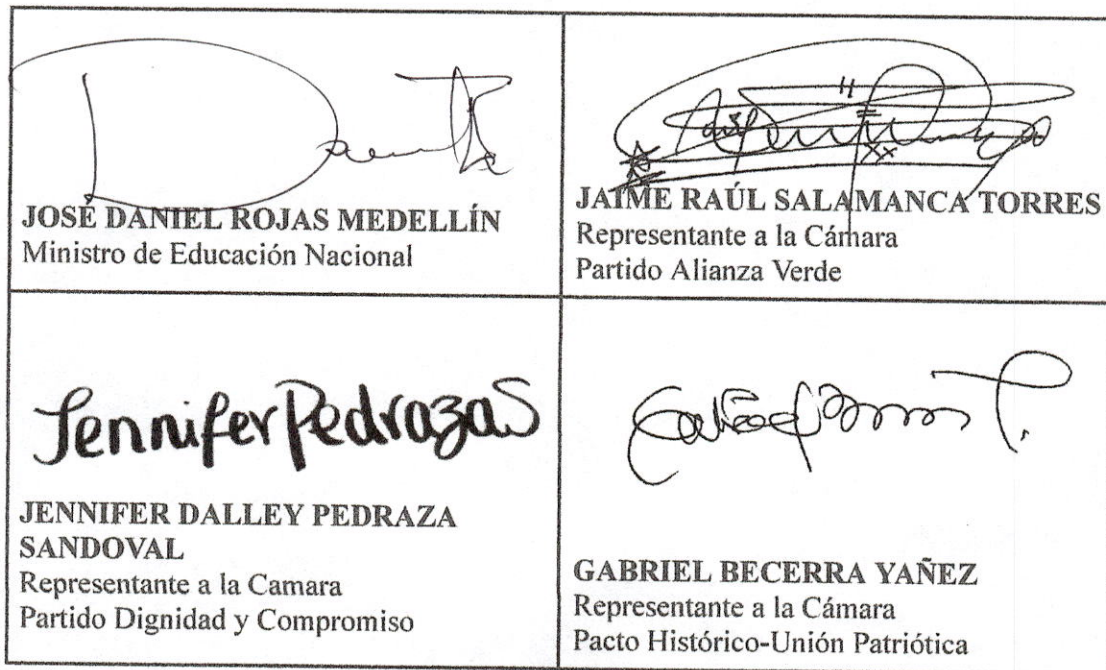 JOSÉ DANIEL ROJAS MEDELLÍN
Ministro de Educación Nacional
JAIME RAÚL SALAMANCA TORRES
Representante a la Cámara
Partido Alianza Verde
Jennifer Pedraza S
JENNIFER DALLEY PEDRAZA
SANDOVAL
Representante a la Camara
Partido Dignidad y Compromiso
GABRIEL BECERRA YAÑEZ
Representante a la Cámara
Pacto Histórico-Unión Patriótica